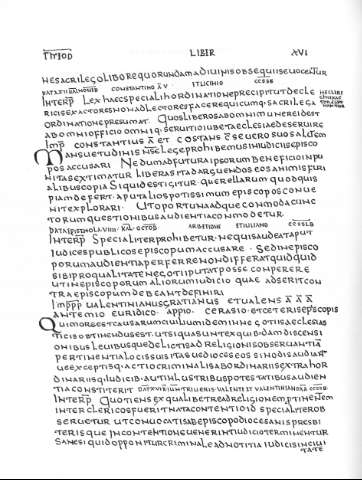 THEOD LIBER XVI
NE SACRILEGO LIBORE QUORUNDAM A DIVINIS OBSEQUIIS EVOCETUR
CONSTANTINO A V ET LICINIO CCSSS
INTERP LEX HAEC SPECIALI ORDINATIONE PRAECIPIT UT DE CLE
RICIS EXACTORES NON ADLECTORES FACERE QUICUMQ SACRILEGA
ORDINATIONE PRESUMAT QUOS LIBEROS AB OMNI MUNERE ID EST
AB OMNI OFFICIO OMNIQ SERVITIO IUBET AECLESIAE DESERVIRE
IMP CONSTANTIUS A ET CONSTANS A SEVERO SUO SALTEM
MANSUETUDINIS NSE LEGE PROHIBEMUS IN IUDICIIS EPISCO
POS ACCUSARI NE DUM ADFUTURA IPSORUM BENEFICIO INPU
NITAS EXTIMATUR LIBERA SIT AD ARGUENDOS EOS ANIMIS FURI
ALIBUS COPIA SIQUID EST IGITUR QUERELLARUM QUOD QUIS
PIAM DEFERT APUT ALIOS POTISSIMUM EPISCOPOS CONVE
NIT EXPLORARI UT OPORTUNA ADQUE COMMODA CUNC
TORUM QUESTIONIBUS AUDIENTIA COMMODETUR
ARBITIONE ET LULIANO CCSSS
INTERP SPECIALITER PROHIBETUR NE QUIS AUDEAT APUT
IUDICES PUBLICOS EPISCOPUM ACCUSARE SED IN EPISCO
PORUM AUDIENTIA PERFERRE NON DIFFERAT QUIDQUID
SIBI PRO QUALITATE NEGOTII PUTAT POSSE CONPETERE
UT IN EPISCOPORUM ALIORUM IUDICIO QUAE ADSERIT CON
TRA EPISCOPUM DEBEANT DEFINIRI
IMPPP VALENTINIANUS GRATIANUS ET VALENS AAA
ANTEMIO EURIDICO APPIO CERASIO ET CETERIS EPISCOPIS
QUI MOR EST CAUSARUM CIVILIUM IDEM IN NEGOTIIS ECLESIAS
TICIS OBTINENDUS EST UT SI QUA SUNT EX QUIBUSDAM DISCENSI
ONIBUS LEVIBUSQUE DELICTIS AD RELIGIONIS OBSERVANTIA
PERTINENTIA LOCIS SUIS ET A SUE DIOCESEOS SINODIS AUDIAN
TUR EXCEPTIS QUAE ACTIO CRIMINALIS AB ORDINARIIS EXTRAHOR
DINARIISQ IUDICIB AUT INLUSTRIBUS POTESTATIBUS AUDIEN
TIA CONSTITERIT VALENTE V ET VALENTINIANO AA CCONSS
INTERP QUOTIENS EX QUALIBET RE AD RELIGIONEM PTINENEM
INTER CLERICOS FUERIT NATA CONTENTIO ID SPECIALITER OB
SERVETUR UT CONVOCATIS AB EPISCOPO DIOCESANIS PRESBI
TERIS QUE IN CONTENTIONE VENERINT IUDICIO TERMINENTUR
SANE SI QUID OPPONITUR CRIMINALE AD NOTITIA IUDICIS IN CIVI
TATE